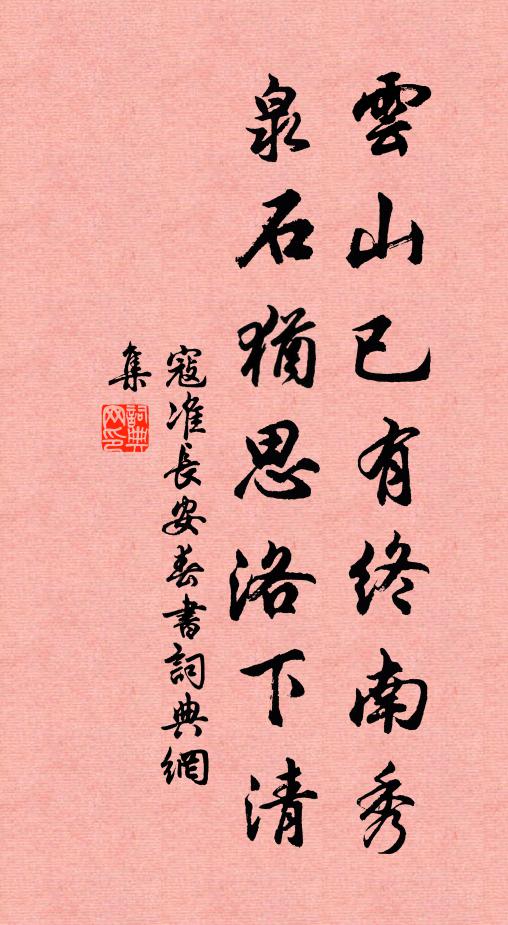 雲山已有終南秀
泉石猶思洛下清
寇准長安春書詞典網
集
詞典
网印